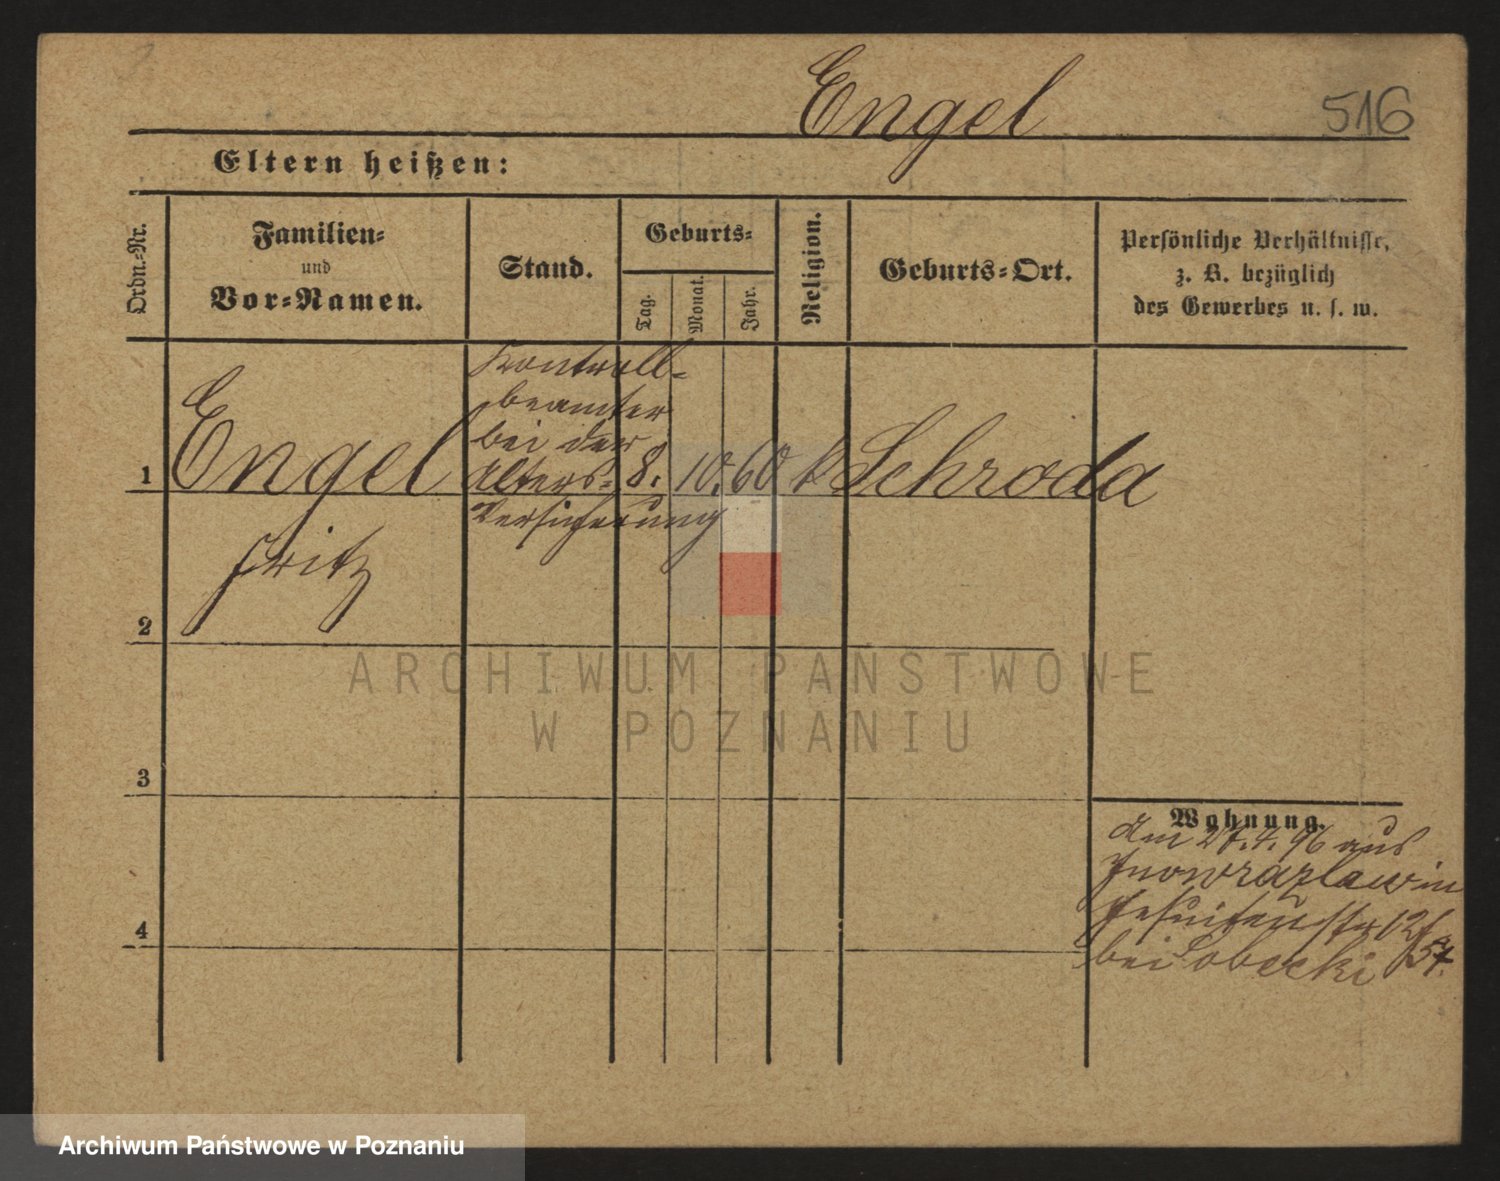 Engel
516
Eltern heißen:
Ordn.-Nr.
Familien-
und
Vor-Namen.
Stand.
Geburts-
Tag.
Monat.
Jahr.
Religion.
Geburts-Ort.
Persönliche Verhältnisse,
z. B. bezüglich
des Gewerbes u. s. w.
1
Engel
Fritz
Kontroll-
beamter
bei der
Alters-
Versicherung
8. 10. 60 k Schroda
2
3
4
Wohnung.
Am 27. 4. 96 aus
Inowrazlaw in
Jesuitenstr 12
bei Sobecki
ARCHIWUM PAŃSTWOWE
W POZNANIU
Archiwum Państwowe w Poznaniu